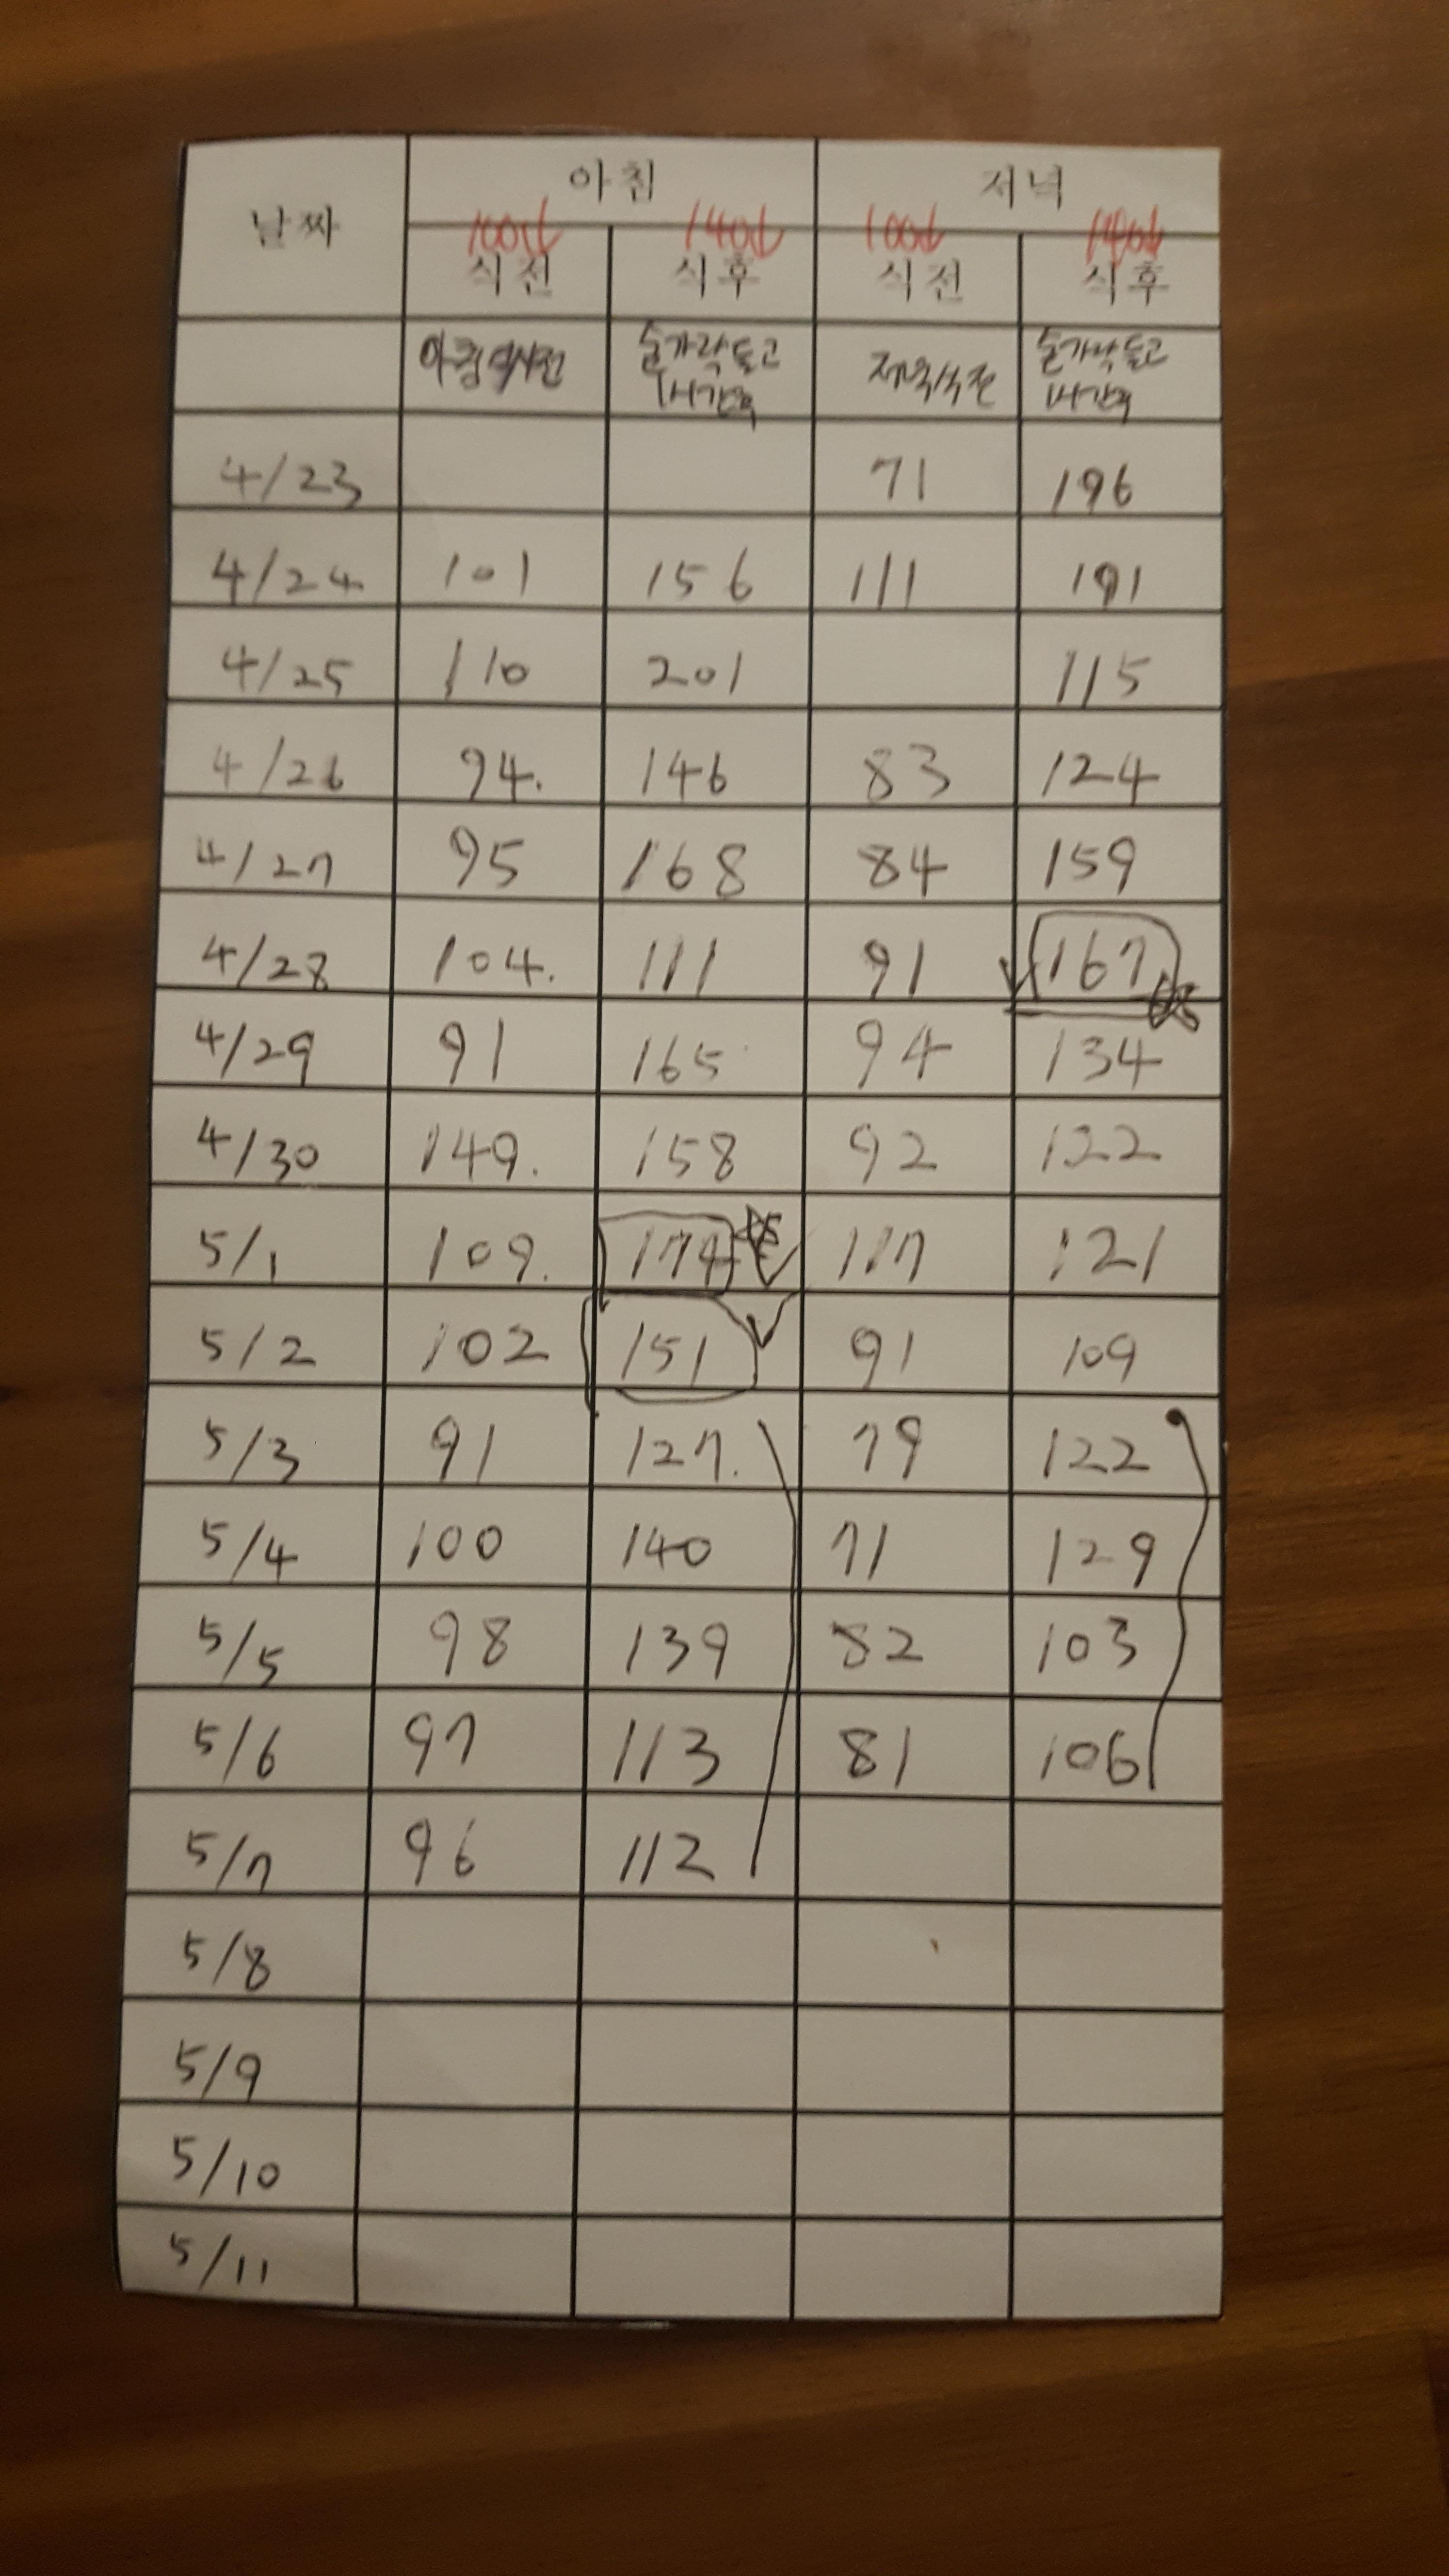 날짜 아침 저녁
100↓ 140↓ 100↓ 140↓
식전 식후 식전 식후
아침식사전 숟가락들고 저녁식전 숟가락들고
1시간후 1시간후
4/23 71 196
4/24 101 156 111 191
4/25 110 201 115
4/26 94. 146 83 124
4/27 95 168 84 159
4/28 104. 111 91 167
4/29 91 165 94 134
4/30 149. 158 92 122
5/1 109. 174 117 121
5/2 102 151 91 109
5/3 91 127. 79 122
5/4 100 140 71 129
5/5 98 139 82 103
5/6 97 113 81 106
5/7 96 112
5/8
5/9
5/10
5/11